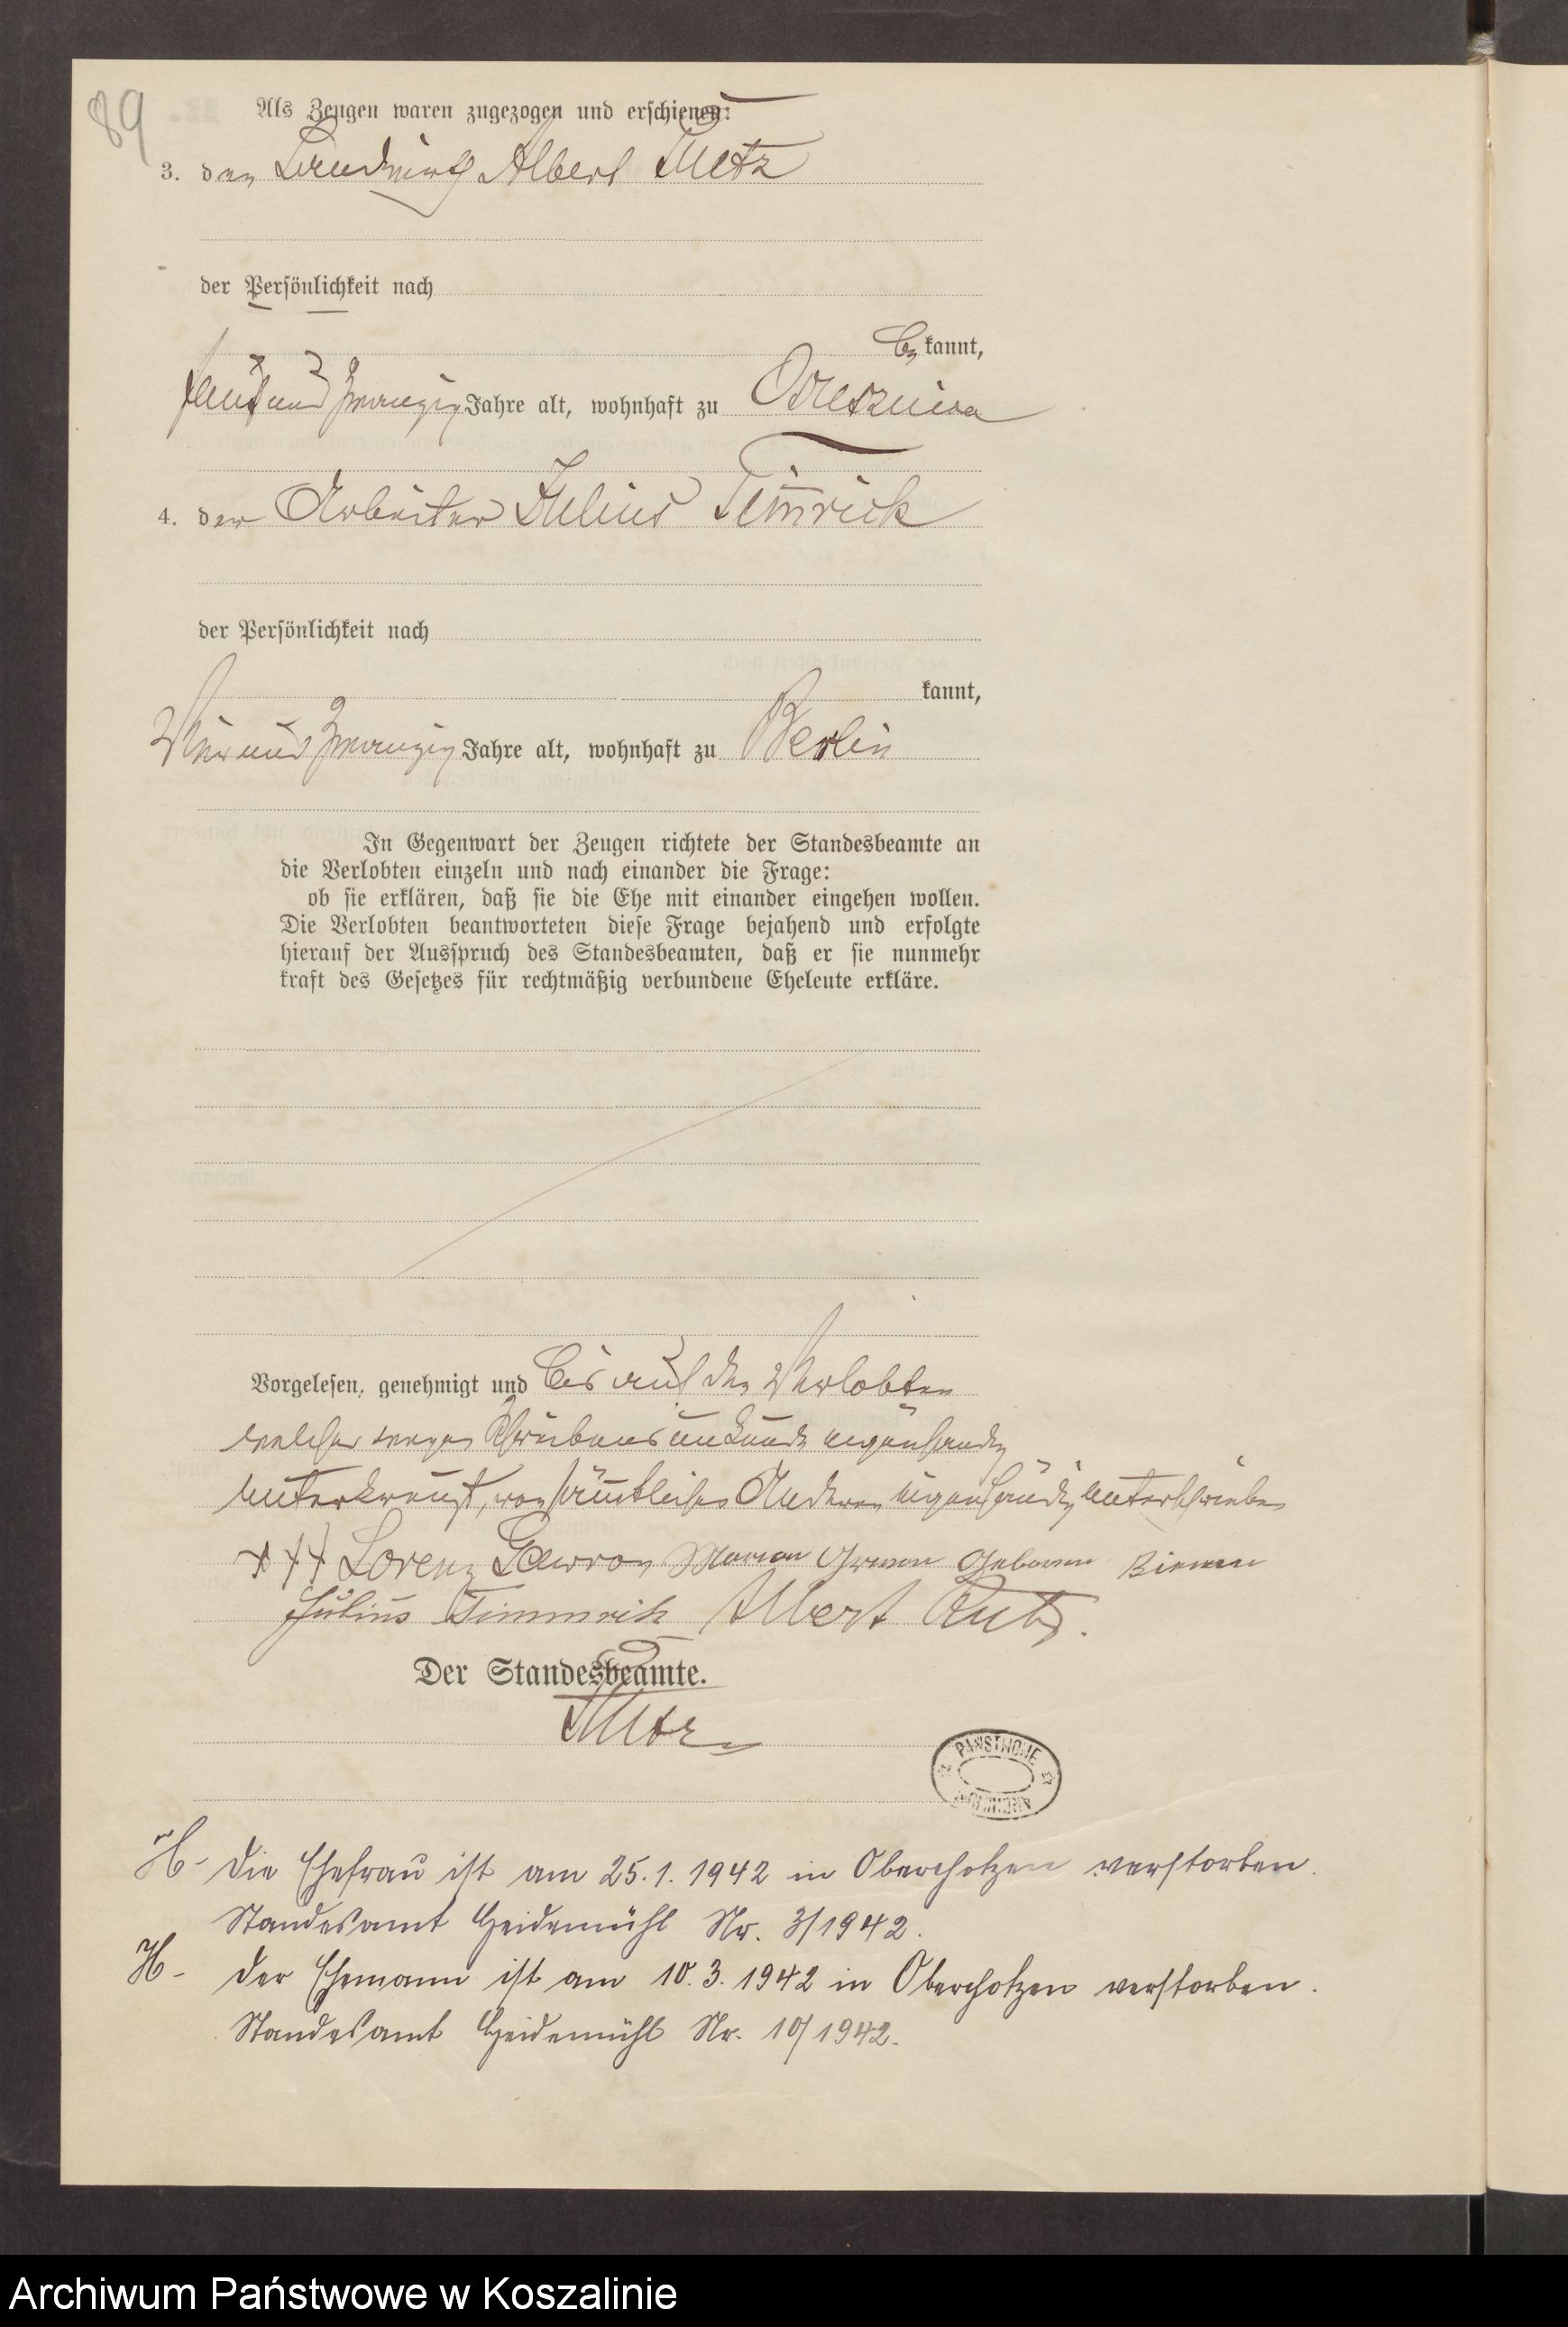 89
Als Zeugen waren zugezogen und erschienen:
3. der Landwirth Albert
der Persönlichkeit nach
be kannt,
fünf und zwanzig Jahre alt, wohnhaft zu
4. der Arbeiter Julius Tim̅rick
der Persönlichkeit nach
kannt,
Vier und zwanzig Jahre alt, wohnhaft zu Berlin
In Gegenwart der Zeugen richtete der Standesbeamte an
die Verlobten einzeln und nach einander die Frage:
ob sie erklären, daß sie die Ehe mit einander eingehen wollen.
Die Verlobten beantworteten diese Frage bejahend und erfolgte
hierauf der Ausspruch des Standesbeamten, daß er sie nunmehr
kraft des Gesetzes für rechtmäßig verbundene Eheleute erkläre.
Vorgelesen, genehmigt und bis auf den Verlobten
welcher wegen Schreibensunkunde eigenhändig
unterkreuzt, von sämtlichen Anderen eigenhändig unterschrieben
+++ Lorenz Gawron Geboren
Julius Timmrik Albert
Der Standesbeamte.
PAŃSTWOWE ARCHIWUM
H- Die Ehefrau ist am 25.1.1942 in Oberchotzen verstorben.
Standesamt Heidemühl Nr. 3/1942.
H- Der Ehemann ist am 10.3.1942 in Oberchotzen verstorben.
Standesamt Heidemühl Nr. 10/1942.
Archiwum Państwowe w Koszalinie